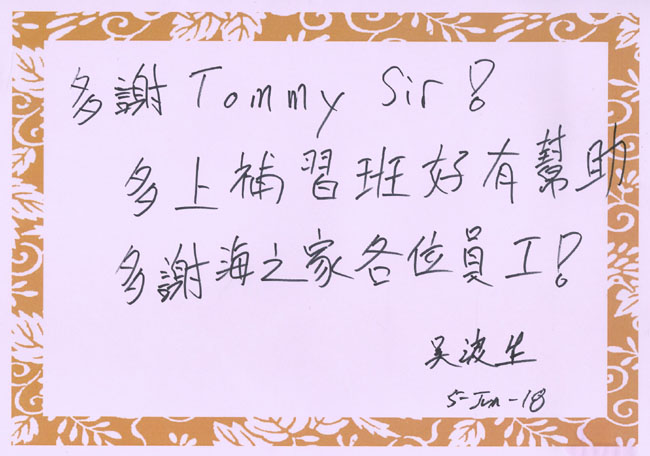 多謝 Tommy Sir!
多上補習班好有幫助
多謝海之家各位員工!
吳波生
5-Jun-18